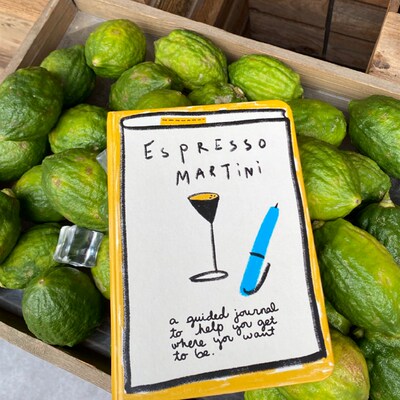 ESPRESSO
MARTINI
a guided journal
to help you get
where you want
to be.